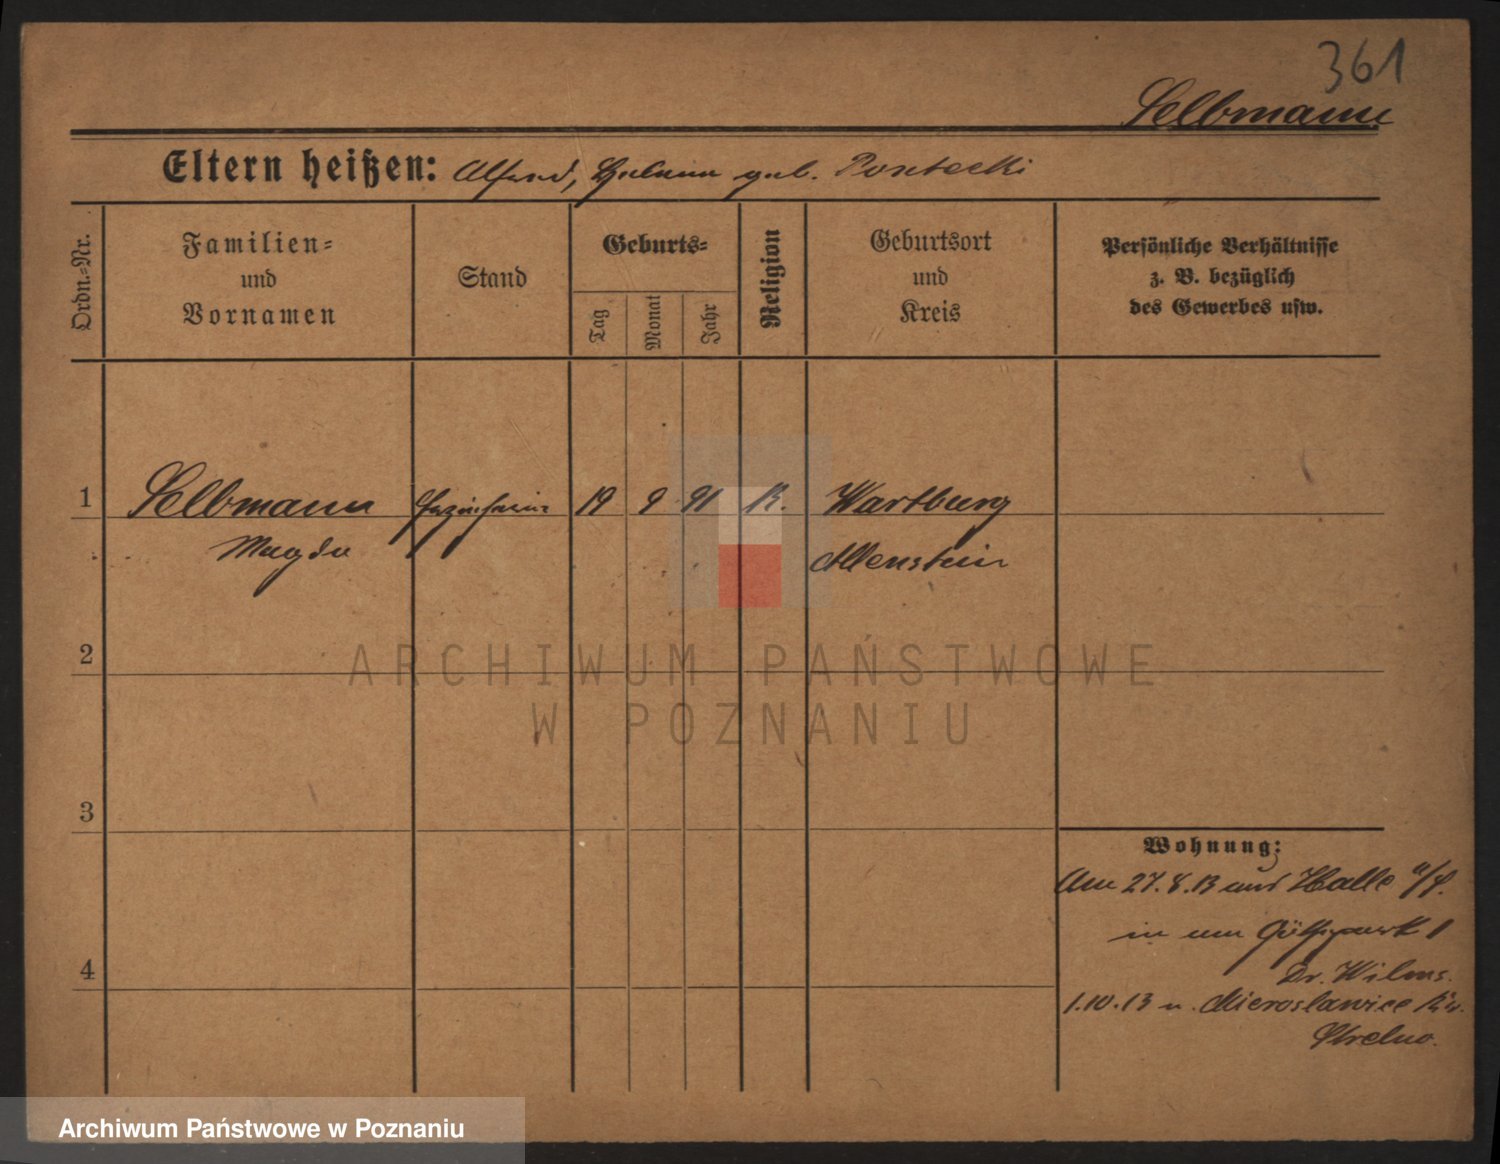 361
Selbmann
Eltern heißen: Alfred, Helene geb. Pontecki
Ordn.-Nr.
Familien-
und
Vornamen
Stand
Geburts-
Tag
Monat
Jahr
Religion
Geburtsort
und
Kreis
Persönliche Verhältnisse
z. B. bezüglich
des Gewerbes usw.
1 Selbmann 19 9 91 K. Wartburg
Magda Allenstein
2
3
4
Wohnung:
Am 27.8.13 aus Halle a/S.
in
Dr. Wilms.
1.10.13 n. Mieroslawice Kr.
Strelno.
ARCHIWUM PAŃSTWOWE
W POZNANIU
Archiwum Państwowe w Poznaniu